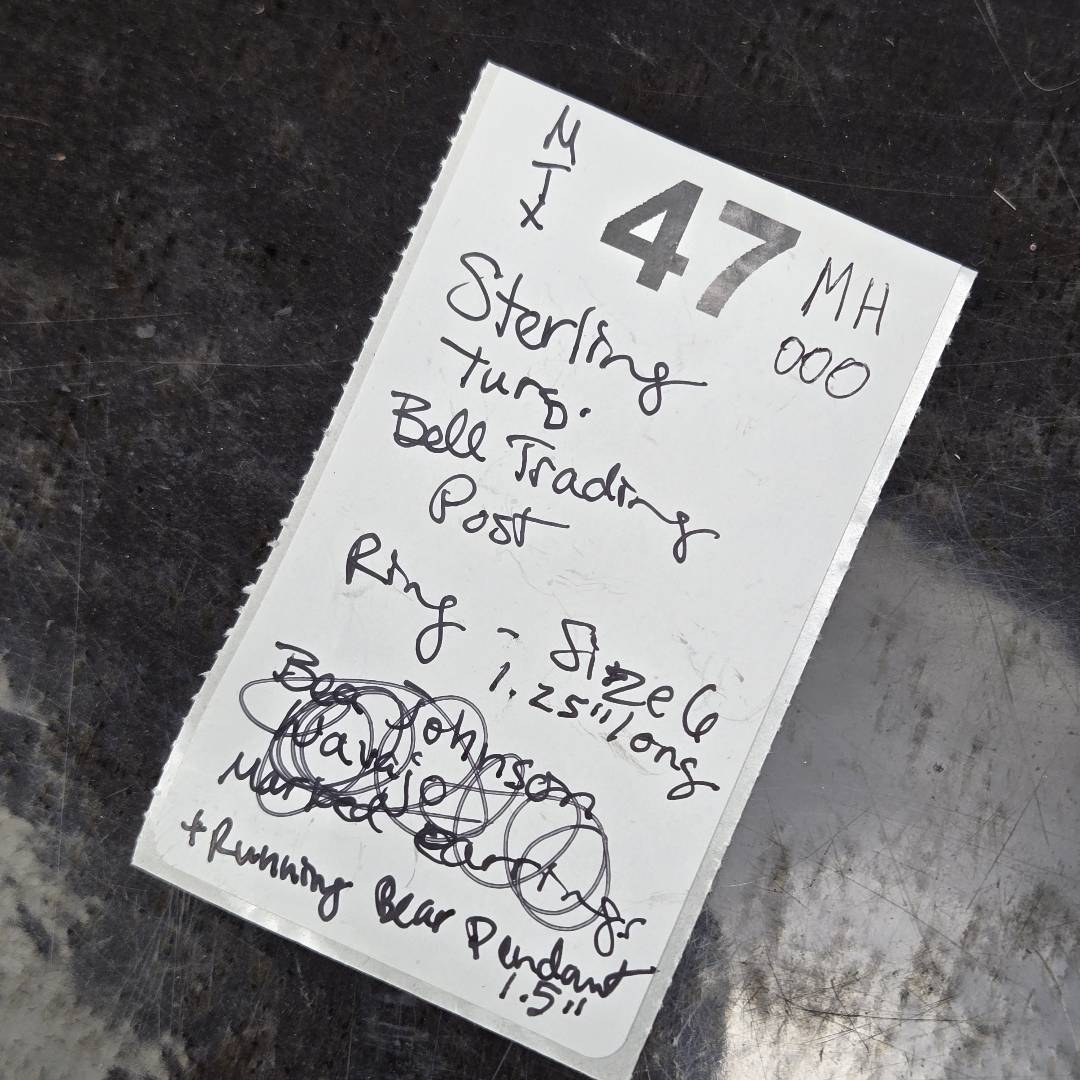 M
T
X
47
MH
000
Sterling
Turq.
Bell Trading
Post
Ring - Size 6
1.25" long
Bea Johnson
Navajo
Marked Earrings
+ Running Bear Pendant
1.5"